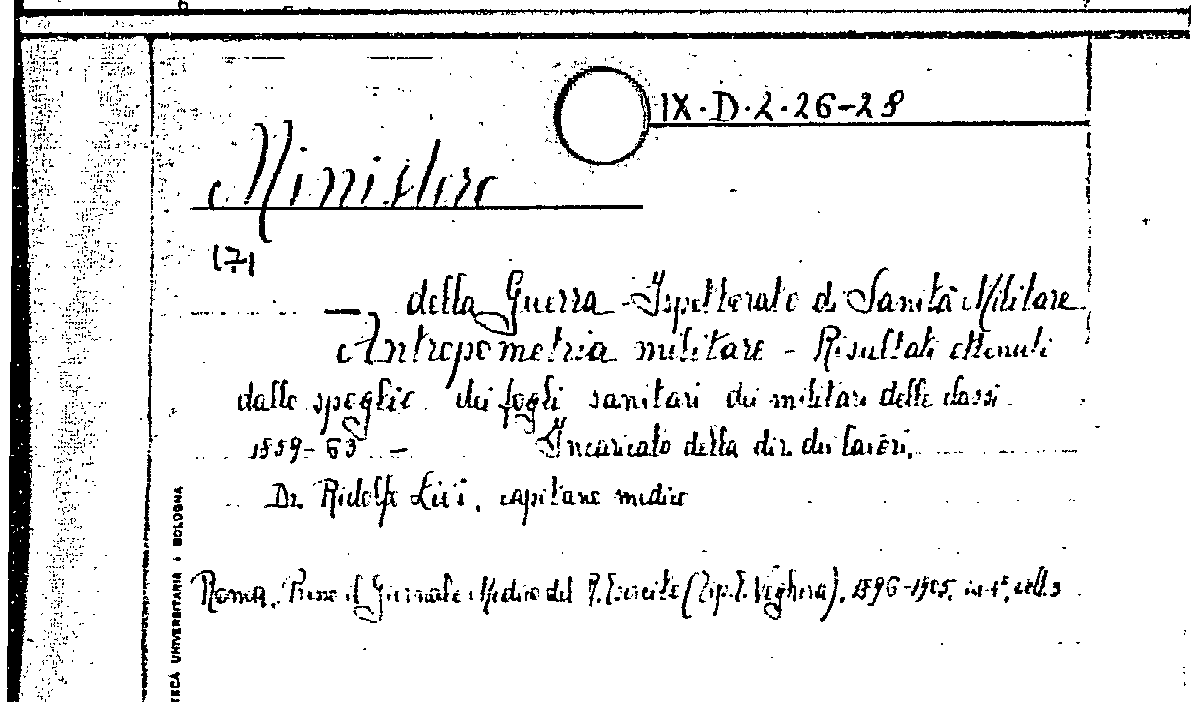 IX.D.2.26-28
Ministero
(7)
— della Guerra - Ispettorato di Sanità Militare
Antropometria militare - Risultati ottenuti
dallo spoglio dei fogli sanitari dei militari delle classi
1859-63 — Incaricato della dir. dei lavori,
Dr. Ridolfo Livi, capitano medico
Roma, Presso il Giornale Medico del R. Esercito (Tip. E. Voghera), 1896-1905, in-4°, voll. 3
TECA UNIVERSITARIA BOLOGNA